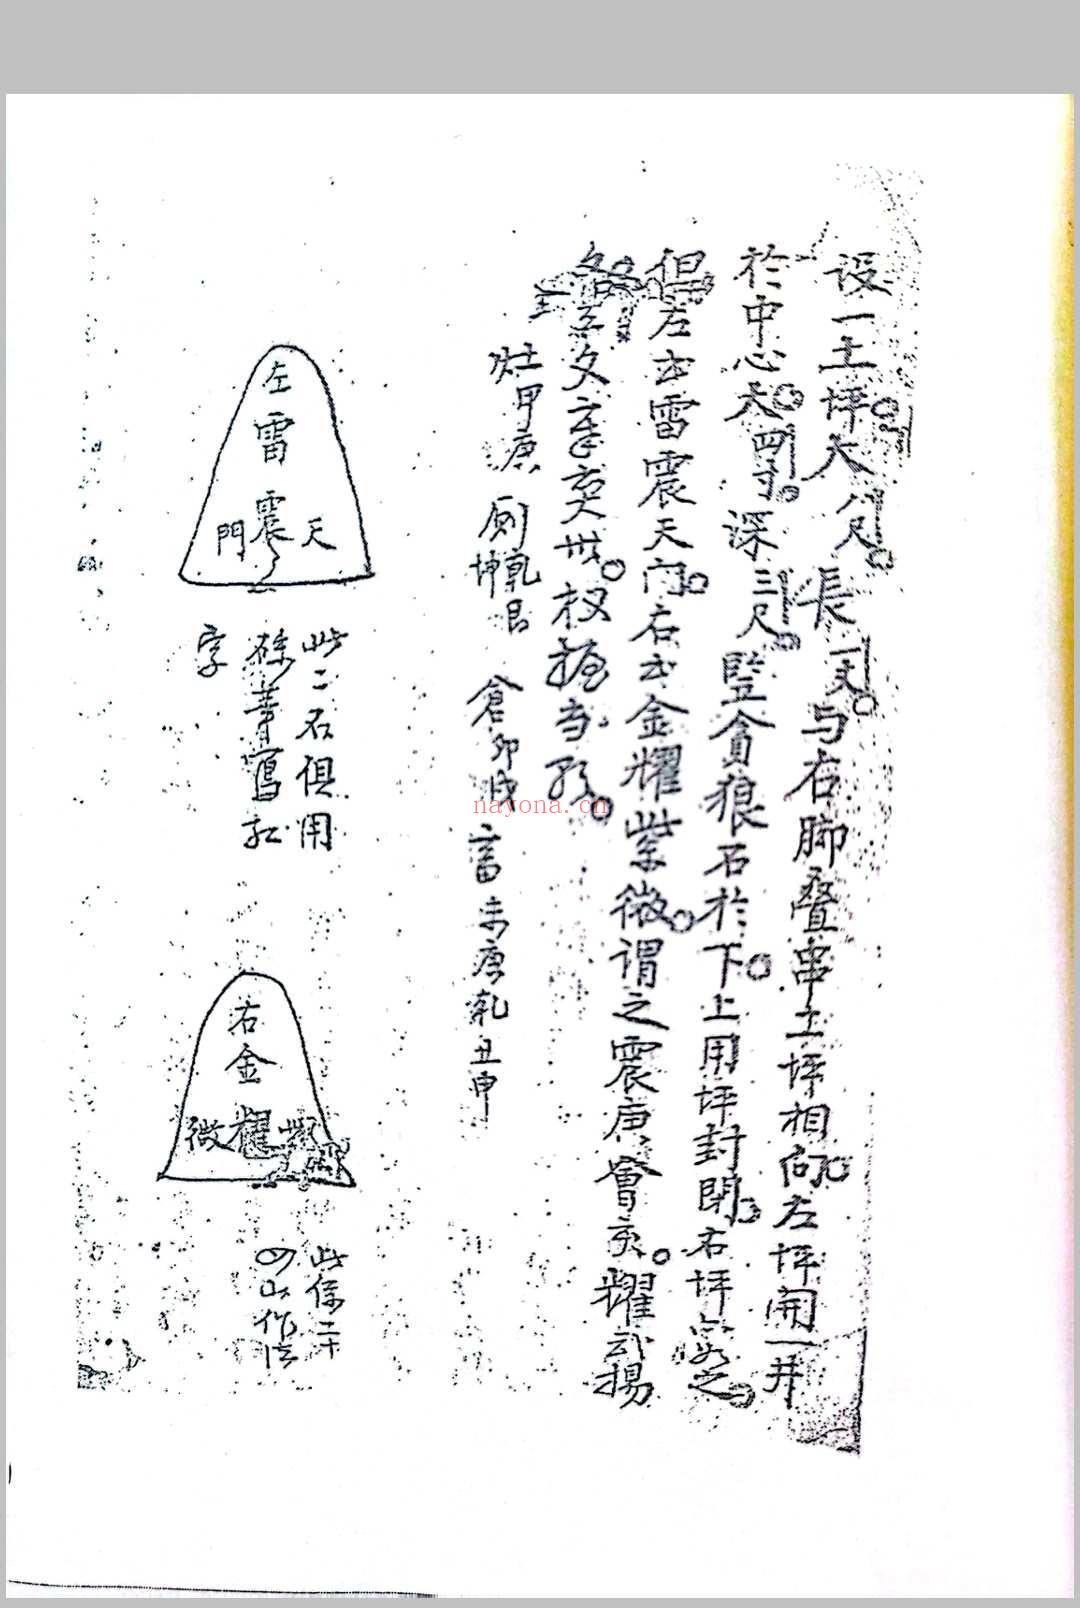 设一土坪大八尺長一丈与右脚叠串土坪相向左坪開一井
於中心大四寸深三尺竪貪狼石於下上用坪封閉右坪亦如之
但左云雷震天门右云金耀紫微谓之震庚會亥耀武揚
名文章奕世权握当
灶甲庚 厠乾坤艮 倉卯戌 畜未庚乾丑申
左雷震
天門
此二石俱用
硃寫紅
字
右金耀
紫微
此係二十
四山作法
nayona.cn